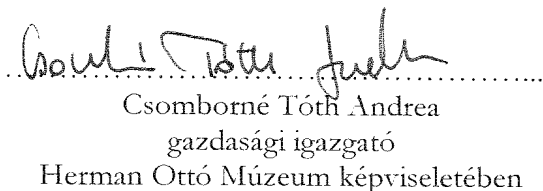 Csombor Tóth Andrea
Csomborné Tóth Andrea
gazdasági igazgató
Herman Ottó Múzeum képviseletében